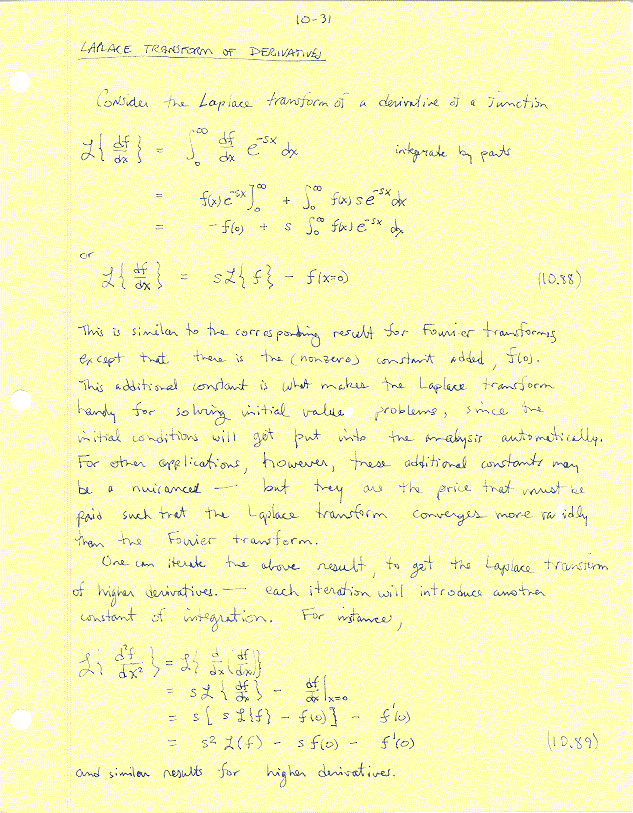 10-31
LAPLACE TRANSFORM OF DERIVATIVES
Consider the Laplace transform of a derivative of a function
ℒ{ df/dx } = ∫₀^∞ df/dx e^{-sx} dx      integrate by parts
= f(x)e^{-sx}]₀^∞ + ∫₀^∞ f(x) s e^{-sx} dx
= - f(0) + s ∫₀^∞ f(x) e^{-sx} dx
or
ℒ{ df/dx } = sℒ{f} - f(x=0)      (10.88)
This is similar to the corresponding result for Fourier transforms
except that there is the (nonzero) constant added, f(0).
This additional constant is what makes the Laplace transform
handy for solving initial value problems, since the
initial conditions will get put into the analysis automatically.
For other applications, however, these additional constants may
be a nuisance — but they are the price that must be
paid such that the Laplace transform converges more rapidly
than the Fourier transform.
One can iterate the above result, to get the Laplace transform
of higher derivatives. — each iteration will introduce another
constant of integration. For instance,
ℒ{ d²f/dx² } = ℒ{ d/dx (df/dx) }
= sℒ{ df/dx } - df/dx|x=0
= s[ sℒ{f} - f(0) ] - f'(0)
= s² ℒ(f) - s f(0) - f'(0)      (10.89)
and similar results for higher derivatives.